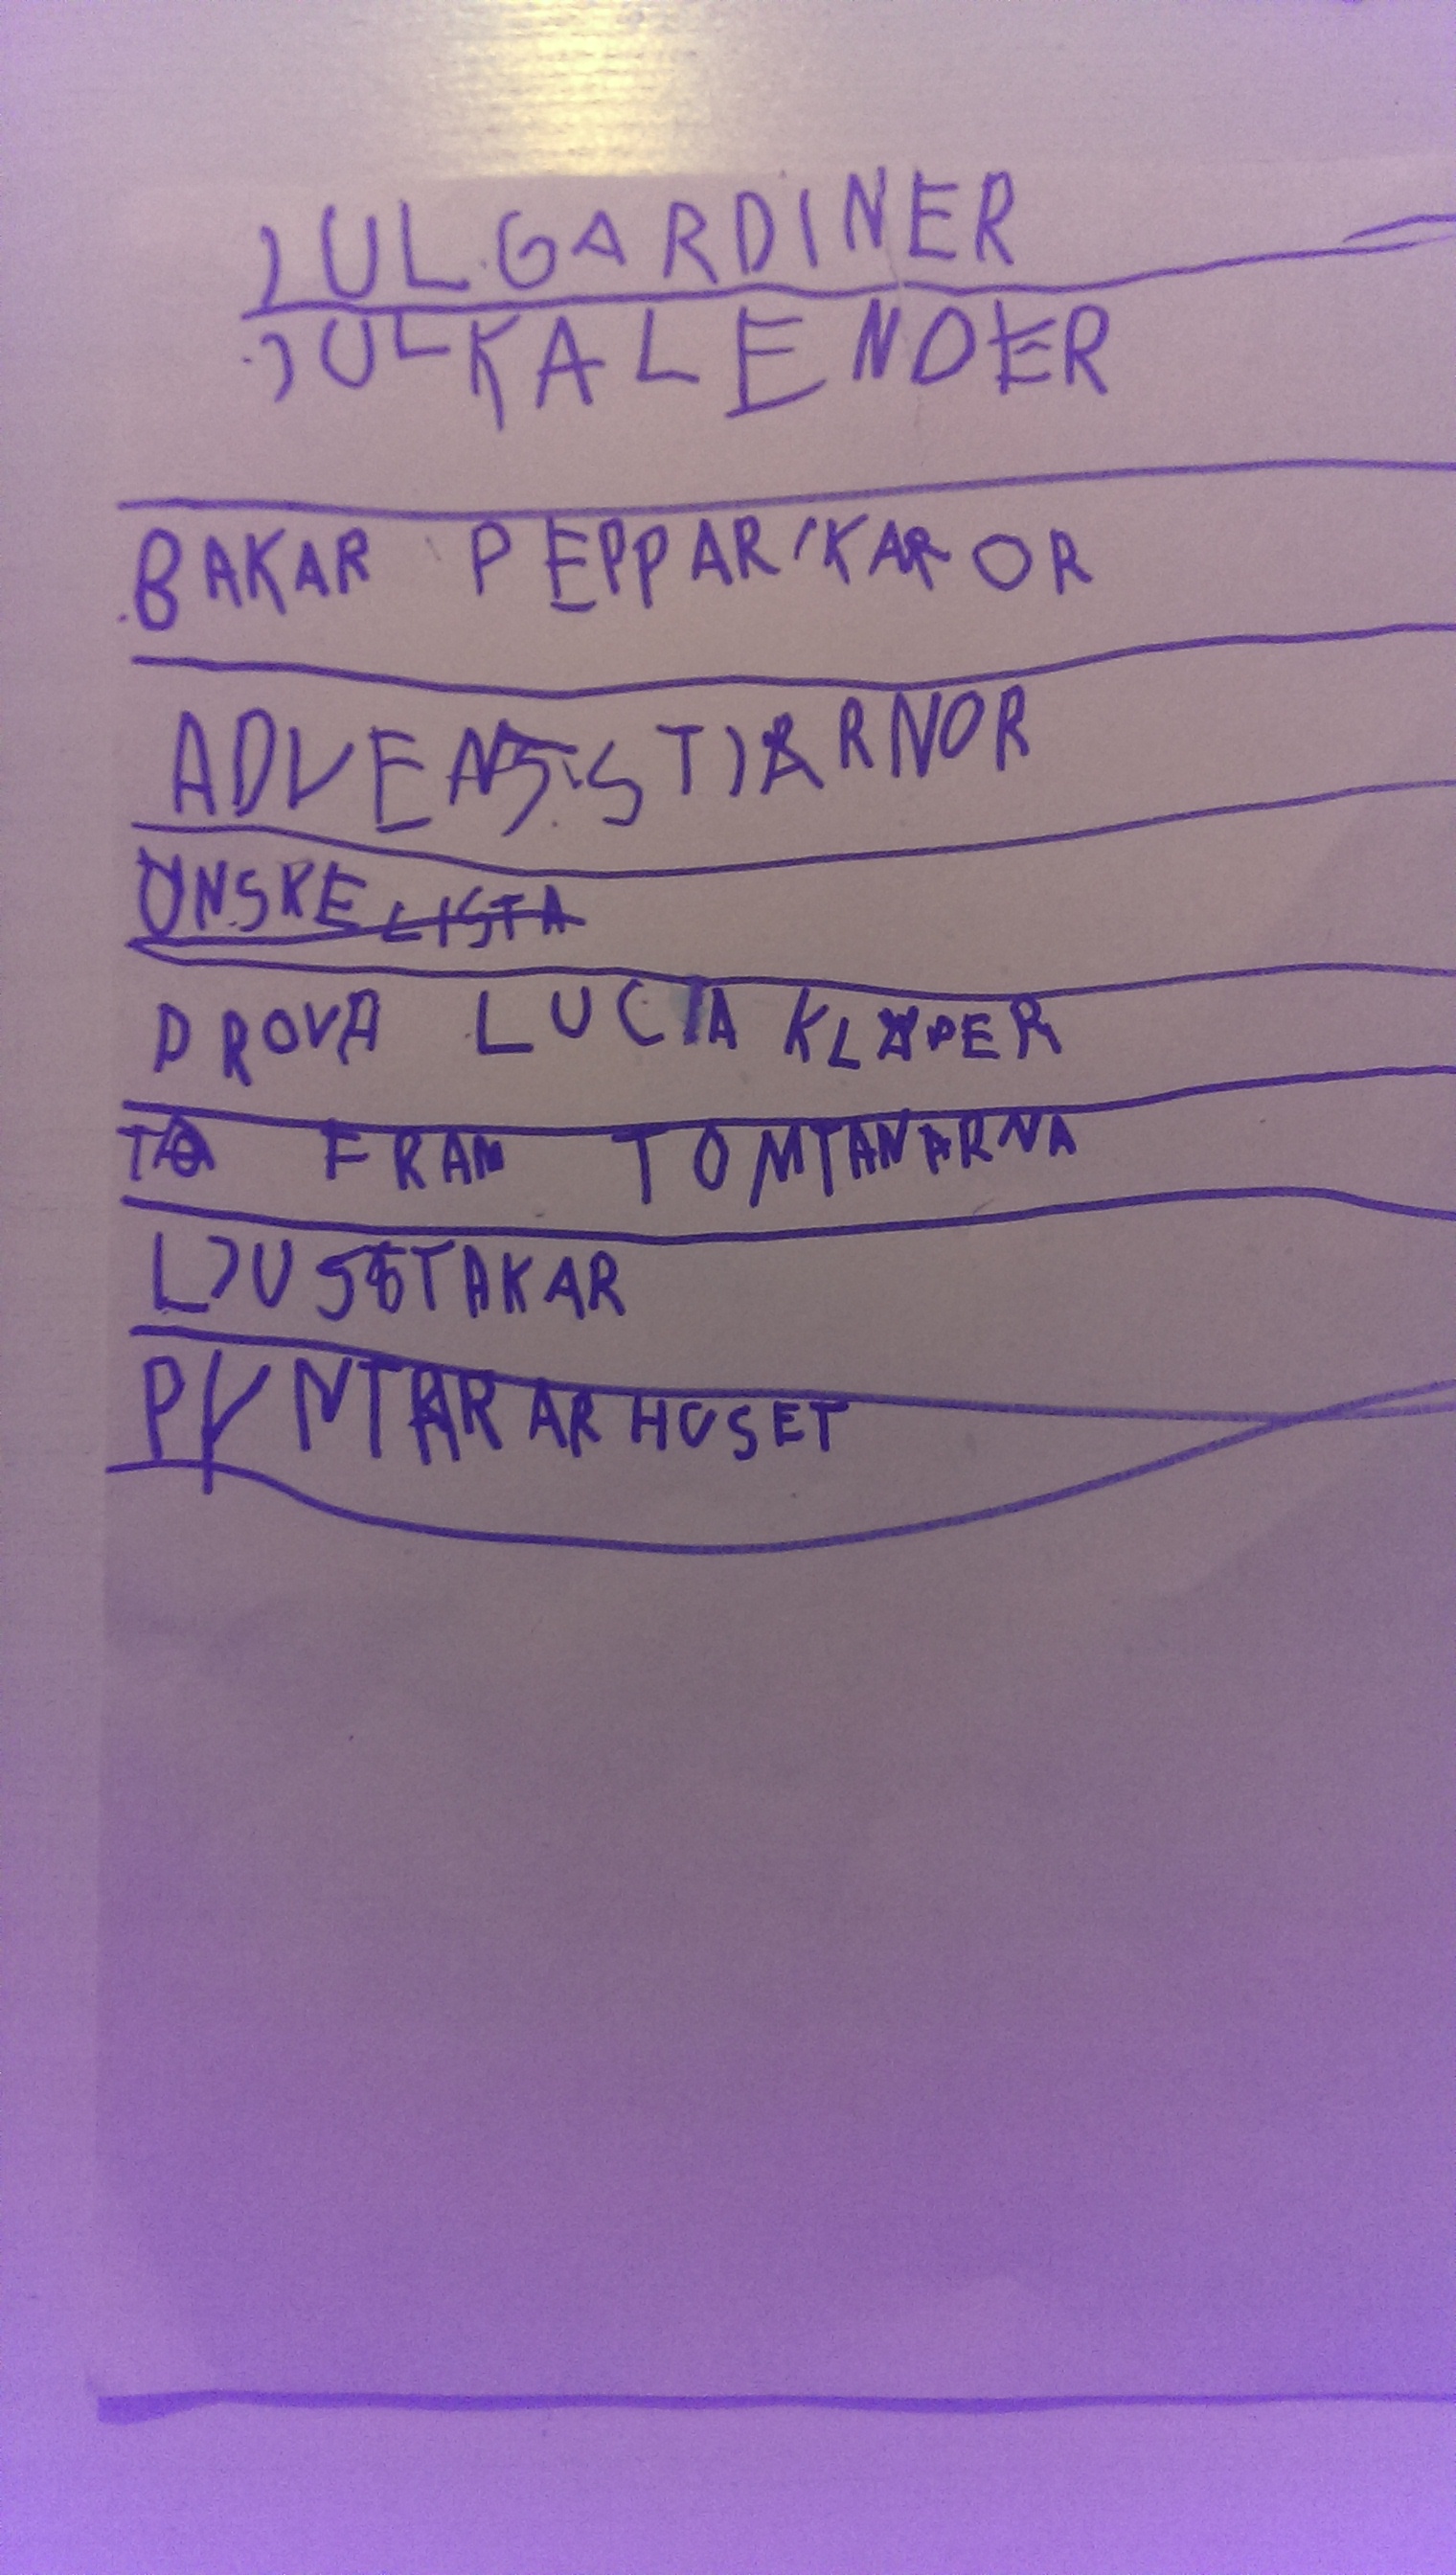 JULGARDINER
JULKALENDER
BAKAR PEPPAR'KAKOR
ADVENSSTJÄRNOR
ÖNSKE LISTA
PROVA LUCIA KLÄPER
TA FRAM TOMTANARNA
LJUSSTAKAR
PYNTARARHUSET